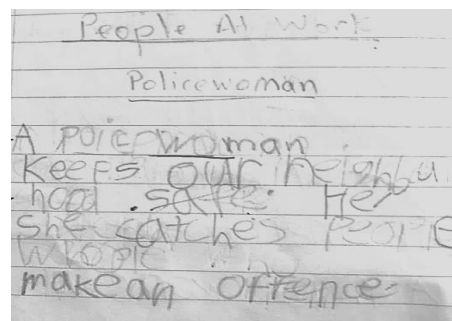 People At Work
Policewoman
A poice woman
keeps our neighbu
hood safe. Her
she catches people
who
make an offence